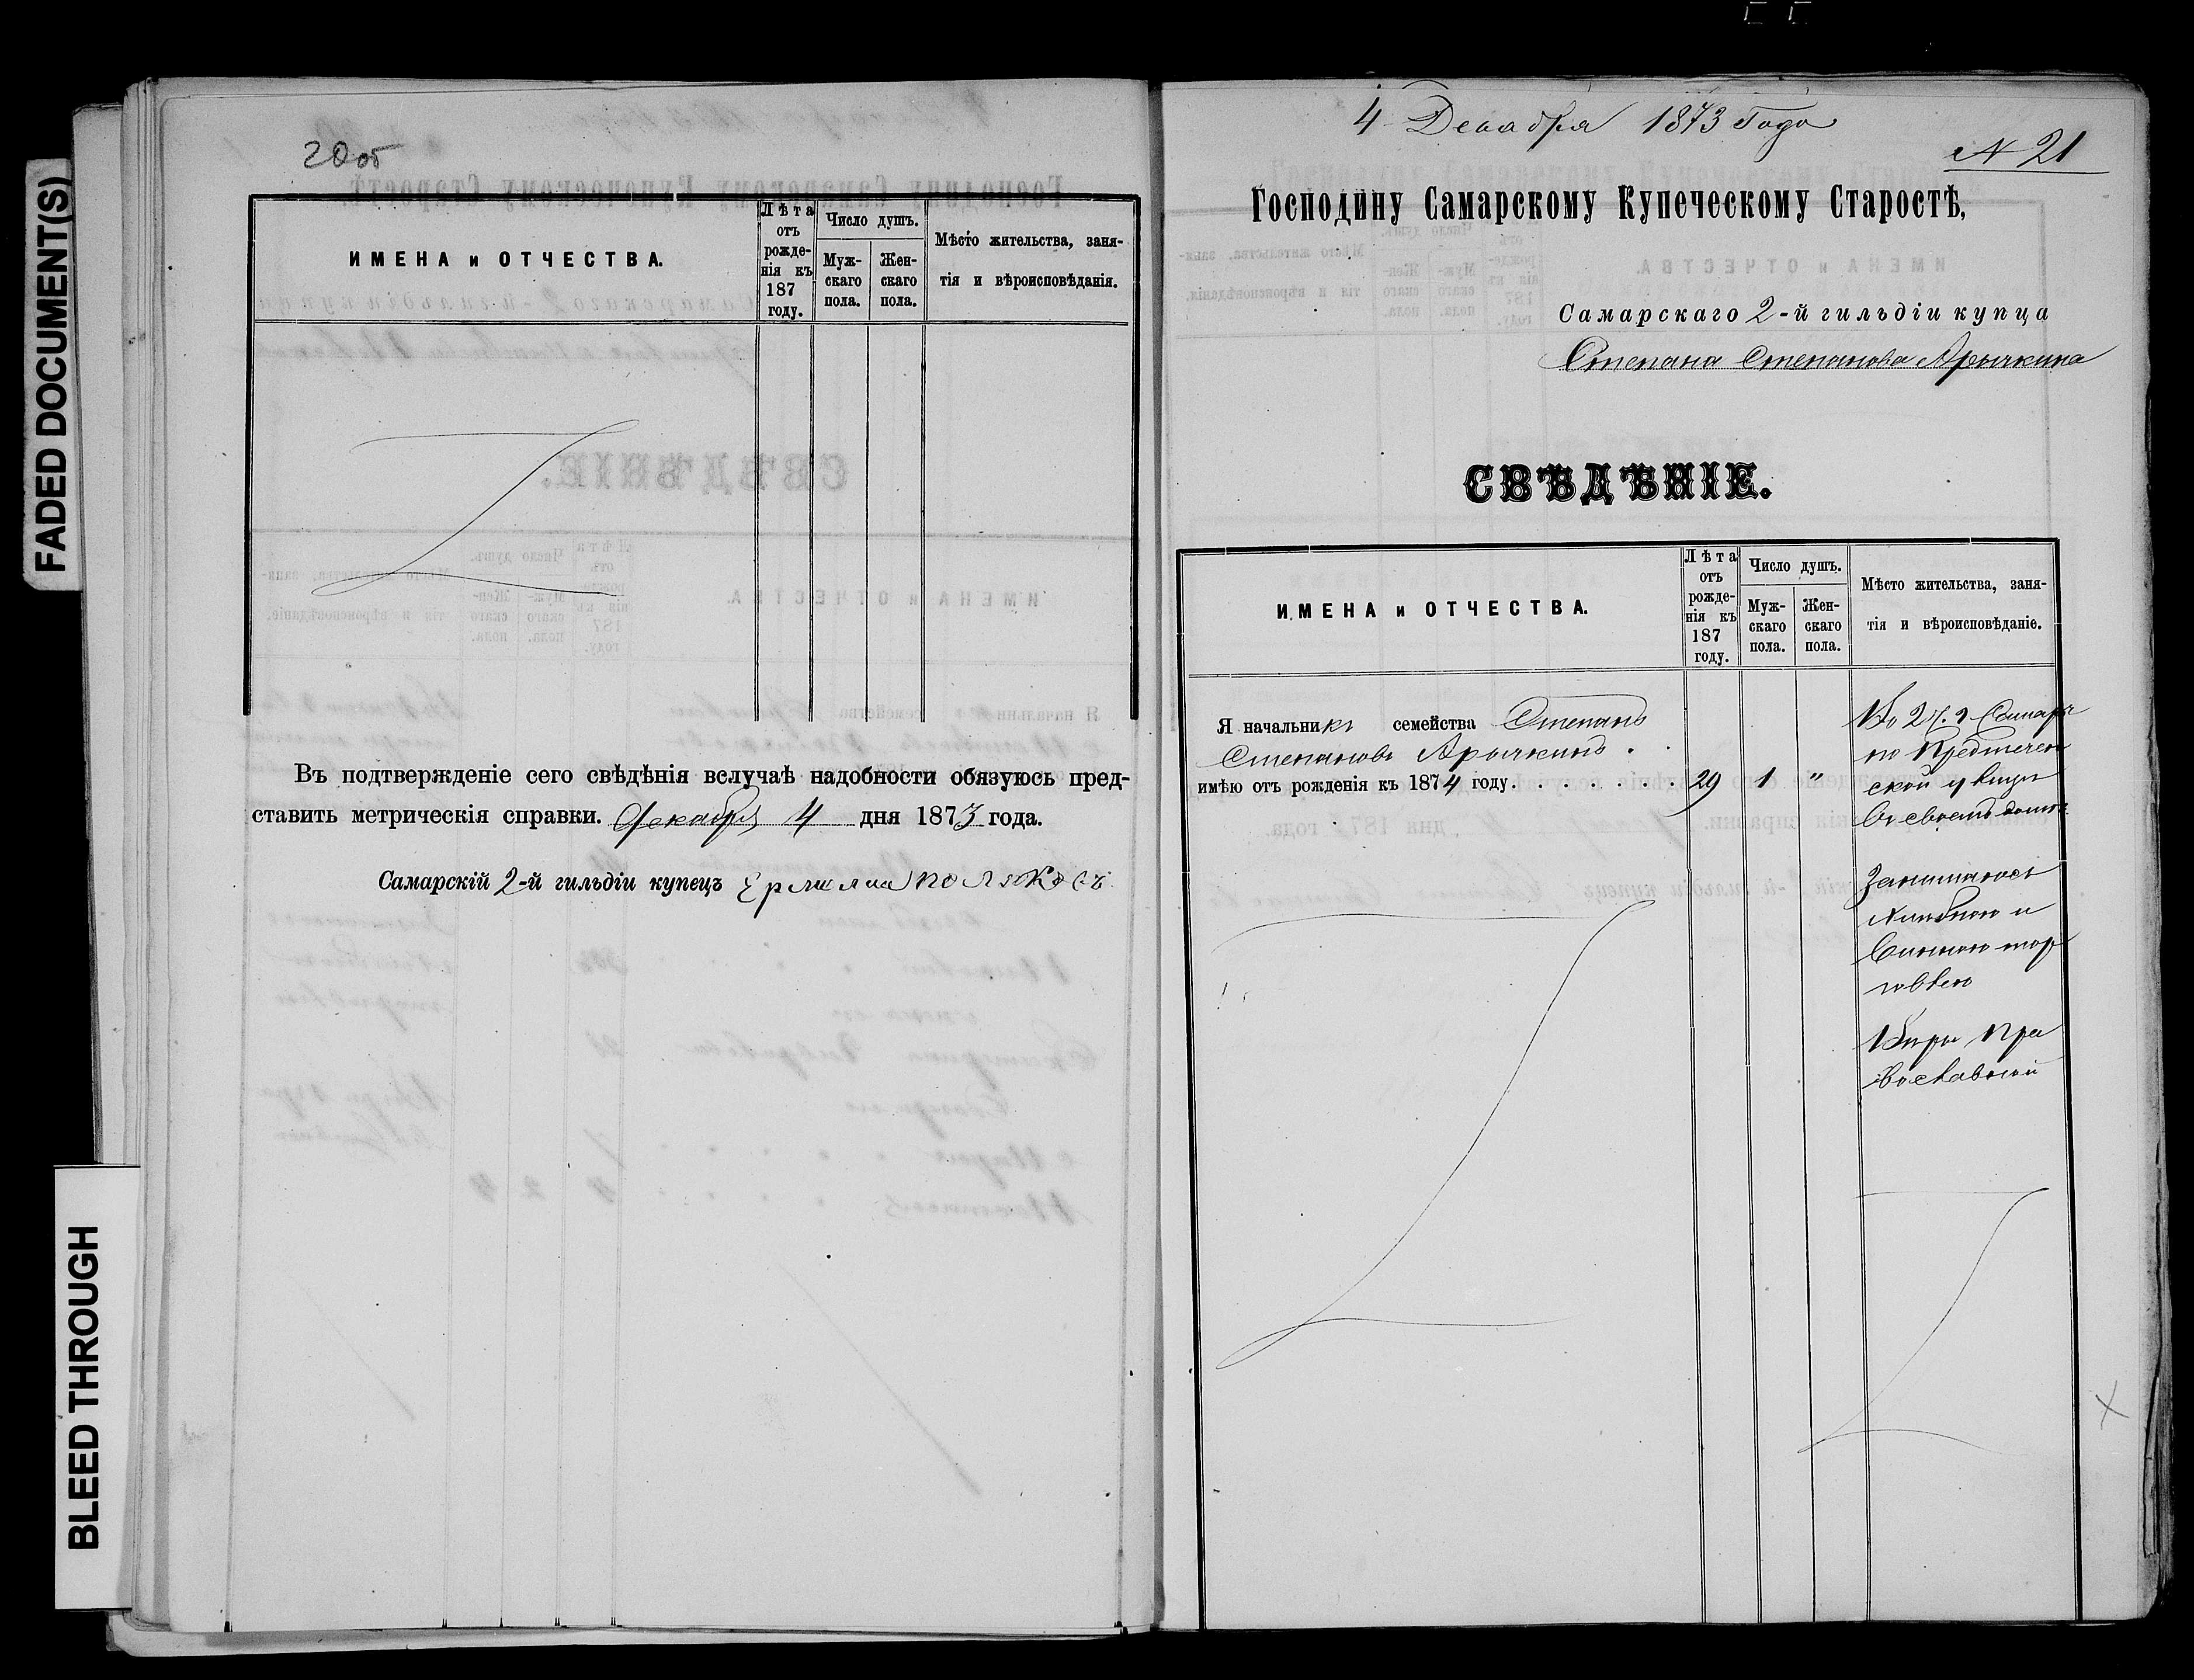 FADED DOCUMENT(S)
BLEED THROUGH
20 об
ИМЕНА и ОТЧЕСТВА.
Лѣта
отъ
рожде-
нія къ
187
году.
Число душъ.
Муж-
скаго
пола.
Жен-
скаго
пола.
Мѣсто жительства, заня-
тія и вѣроисповѣданія.
Въ подтвержденіе сего свѣдѣнія вслучаѣ надобности обязуюсь пред-
ставить метрическія справки. Декабря 4 дня 1873 года.
Самарскій 2-й гильдіи купецъ
4 Декабря 1873 Года
N 21
Господину Самарскому Купеческому Старостѣ,
Самарскаго 2-й гильдіи купца
Степана Степанова Арычкина
СВѢДѢНІЕ.
ИМЕНА и ОТЧЕСТВА.
Лѣта
отъ
рожде-
нія къ
187
году.
Число душъ.
Муж-
скаго
пола.
Жен-
скаго
пола.
Мѣсто жительства, заня-
тія и вѣроисповѣданіе.
Я начальникъ семейства Степанъ
Степановъ Арычкинъ .
имѣю отъ рожденія къ 1874 году. . . . . . . . 29 1 "
Во 2 ч. г Самары
по Предтечен
ской улицы
Въ своемъ домѣ
Занимаюсь
хлѣбною и
Винною тор
говлею
Вѣры Пра
вославной